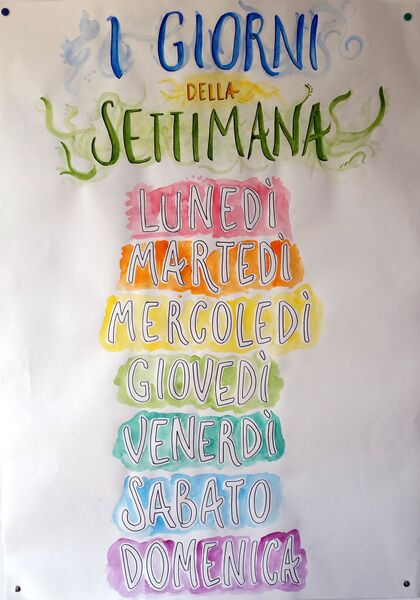 I GIORNI
DELLA
SETTIMANA
LUNEDÌ
MARTEDÌ
MERCOLEDÌ
GIOVEDÌ
VENERDÌ
SABATO
DOMENICA